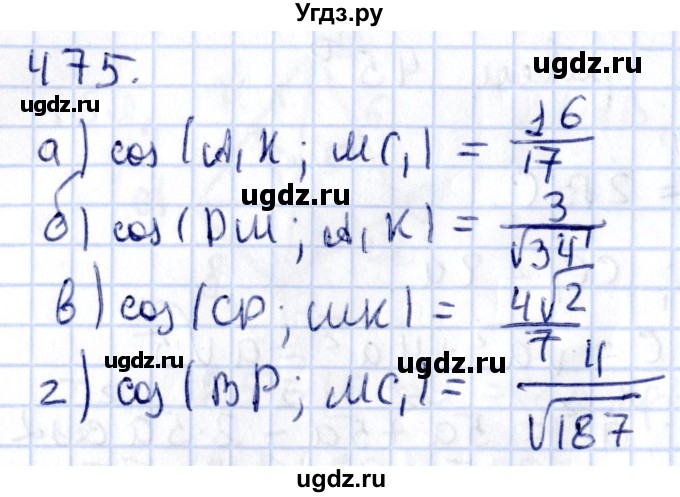 Угдз.ру
475.
ugdz.ru ugdz.ru
а) cos(A₁K; MC₁) = 16/17
ugdz.ru
б) cos(DM; A₁K) = 3/√34
ugdz.ru
в) cos(CP; MK) = 4√2/7
ugdz.ru ugdz.ru
г) cos(BP; MC₁) = 4/√187
ugdz.ru
ugdz.ru